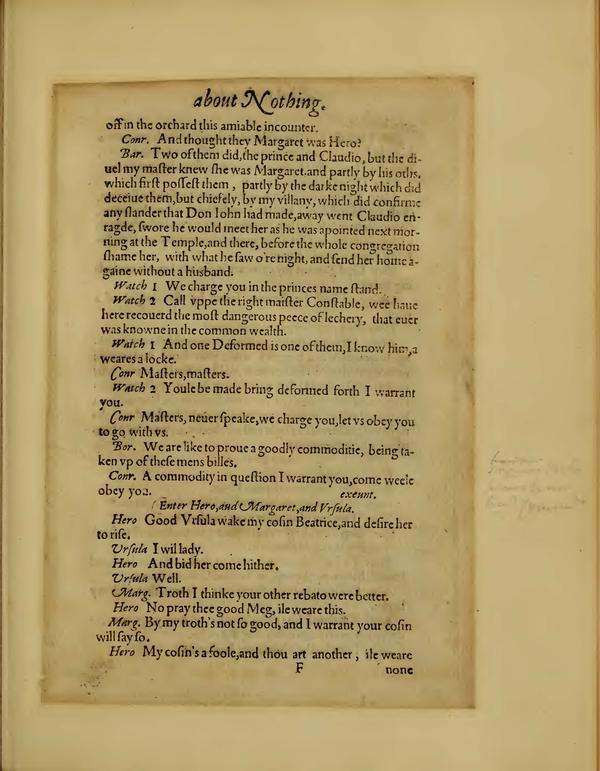 about Nothing.
off in the orchard this amiable incounter.
Conr. And thought they Margaret was Hero?
Bar. Two of them did, the prince and Claudio, but the di-
uel my maſter knew ſhe was Margaret, and partly by his oths,
which firſt poſſeſt them, partly by the darke night which did
deceiue them, but chiefely, by my villany, which did confirme
any ſlander that Don Iohn had made, away went Claudio en-
ragde, ſwore he would meet her as he was apointed next mor-
ning at the Temple, and there, before the whole congregation
ſhame her, with what he ſaw o're night, and ſend her home a-
gaine without a husband.
Watch 1 We charge you in the princes name ſtand.
Watch 2 Call vppe the right maiſter Conſtable, wee haue
here recouerd the moſt dangerous peece of lechery, that euer
was knowne in the common wealth.
Watch 1 And one Deformed is one of them, I know him, a
weares a locke.
Conr Maſters, maſters.
Watch 2 Youle be made bring deformed forth I warrant
you.
Conr Maſters, neuer ſpeake, we charge you, let vs obey you
to go with vs.
Bor. We are like to proue a goodly commoditie, being ta-
ken vp of theſe mens billes.
Conr. A commodity in queſtion I warrant you, come weele
obey you. exeunt.
Enter Hero, and Margaret, and Vrſula.
Hero Good Vrſula wake my coſin Beatrice, and deſire her
to riſe.
Vrſula I wil lady.
Hero And bid her come hither.
Vrſula Well.
Marg. Troth I thinke your other rebato were better.
Hero No pray thee good Meg, ile weare this.
Marg. By my troth's not ſo good, and I warrant your coſin
will ſay ſo.
Hero My coſin's a foole, and thou art another, ile weare
F none